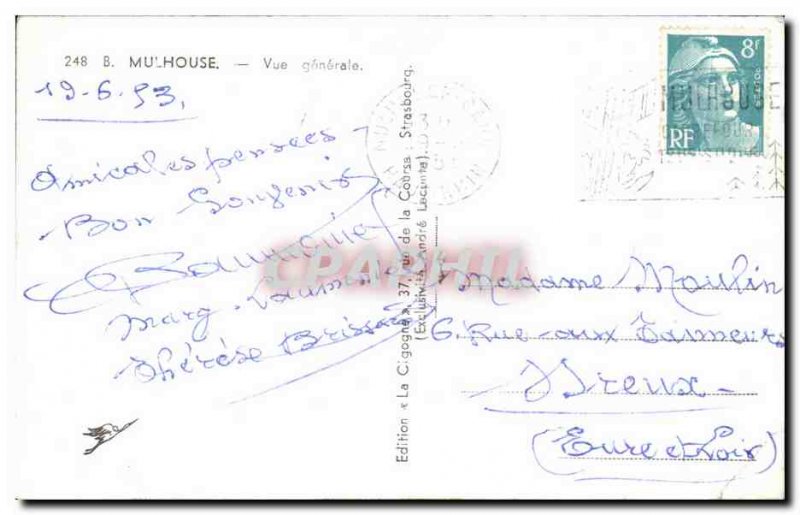 248 B. MULHOUSE. — Vue générale.
19-6-53.
Amicales pensées -
- Bon Souvenir
Marg.
Thérèse Brissard
Edition « La Cigogne », 37, rue de la Course, Strasbourg.
(Exclusivité André Leconte)
8F
RF
MULHOUSE
CPAPHIL
Madame Moulin
6. Rue aux Tanneurs
Dreux -
(Eure et Loir)